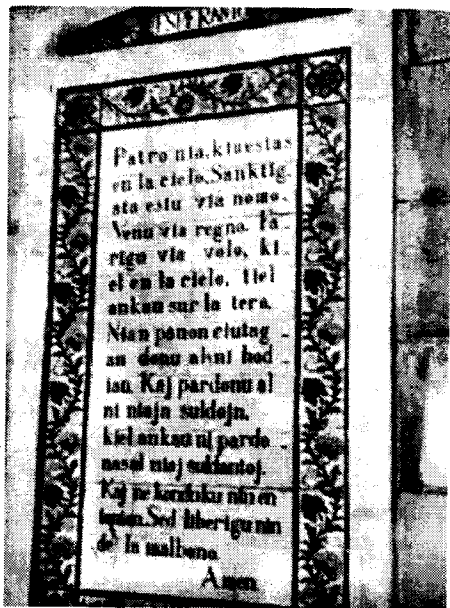 ESPERANTO
Patro nia, kiu estas
en la cielo, Sanktig-
ata estu via nomo.
Venu via regno. Fa-
rigu via volo, ki-
el en la cielo, tiel
ankau sur la tera,
Nian panon ciutag-
an donu al ni hod-
iau. Kaj pardonu al
ni niajn suldojn,
kiel ankau ni pardo-
nas al niaj suldantoj.
Kaj ne konduku nin en
Sed liberigu nin
de la malbono.
Amen